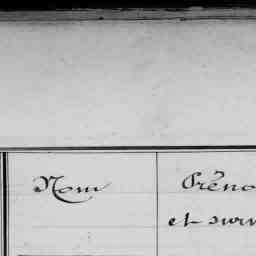 Nom
Préno
et surn